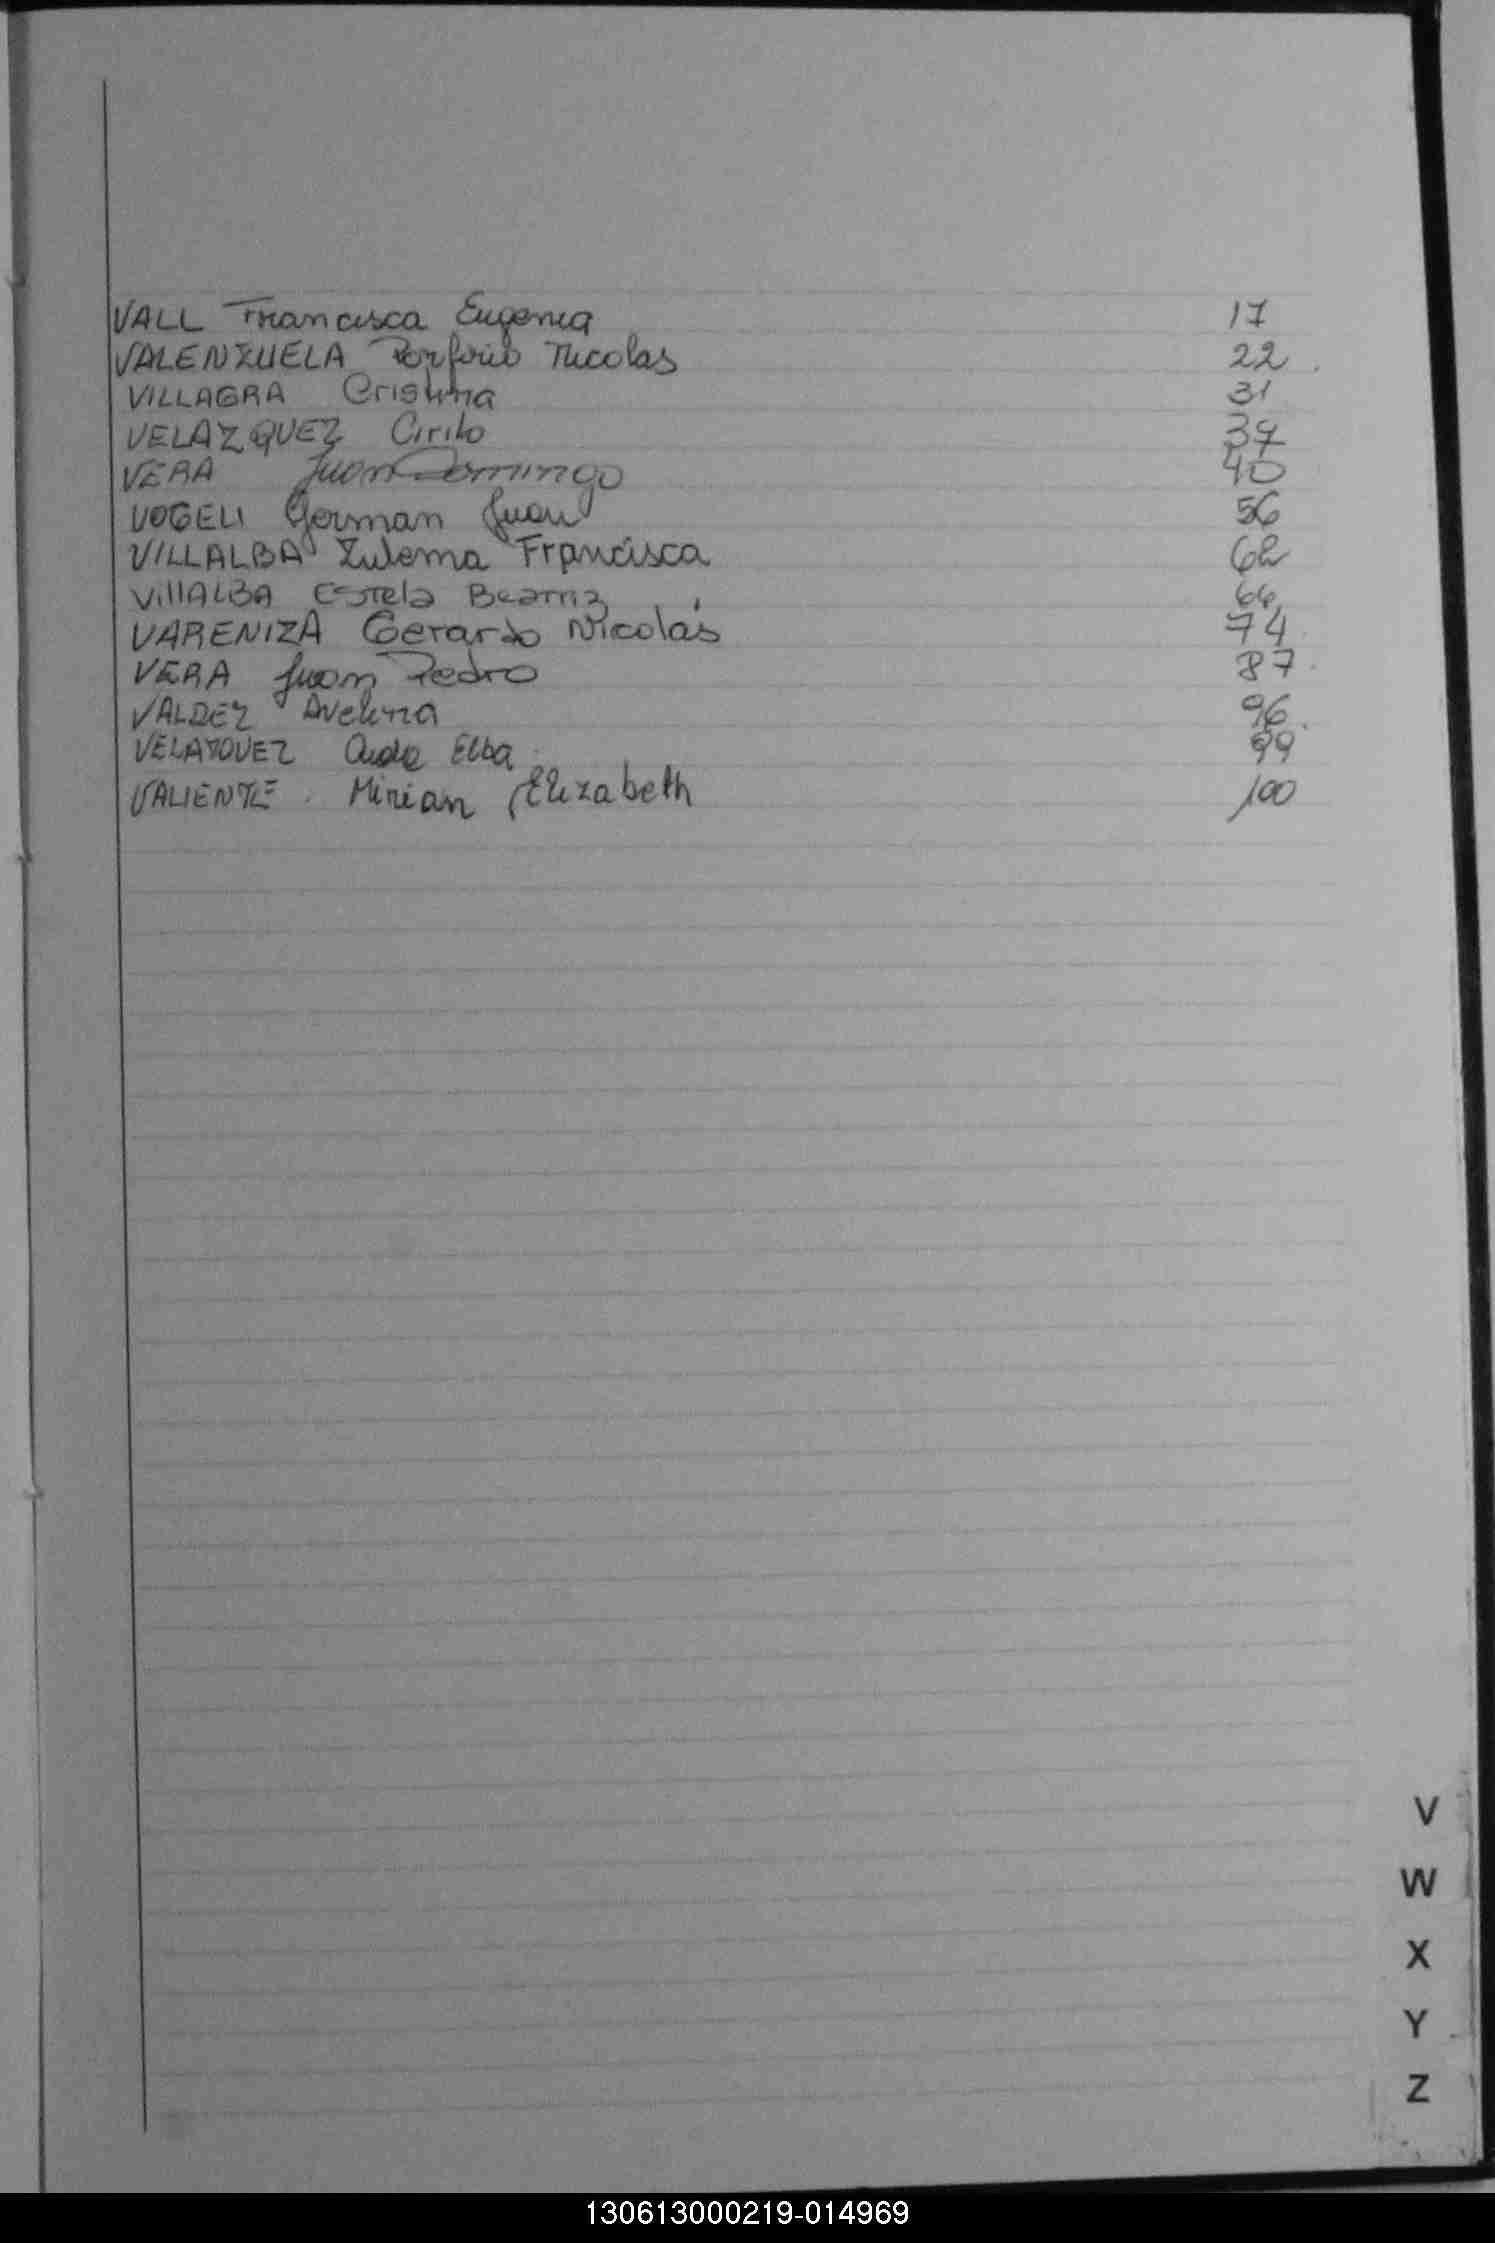 VALL Francisca Eugenia 17
VALENZUELA Porfirio Nicolas 22
VILLAGRA Cristina 31
VELAZQUEZ Cirilo 37
VERA Juan Domingo 40
VOGELI German Juan 56
VILLALBA Zulema Francisca 62
VillALBA Estela Beatriz 66
VARENIZA Gerardo Nicolás 74
VERA Juan Pedro 87
VALDEZ Avelina 96
VELAZQUEZ Elba 99
VALIENTE Mirian Elizabeth 100
V
W
X
Y
Z
130613000219-014969